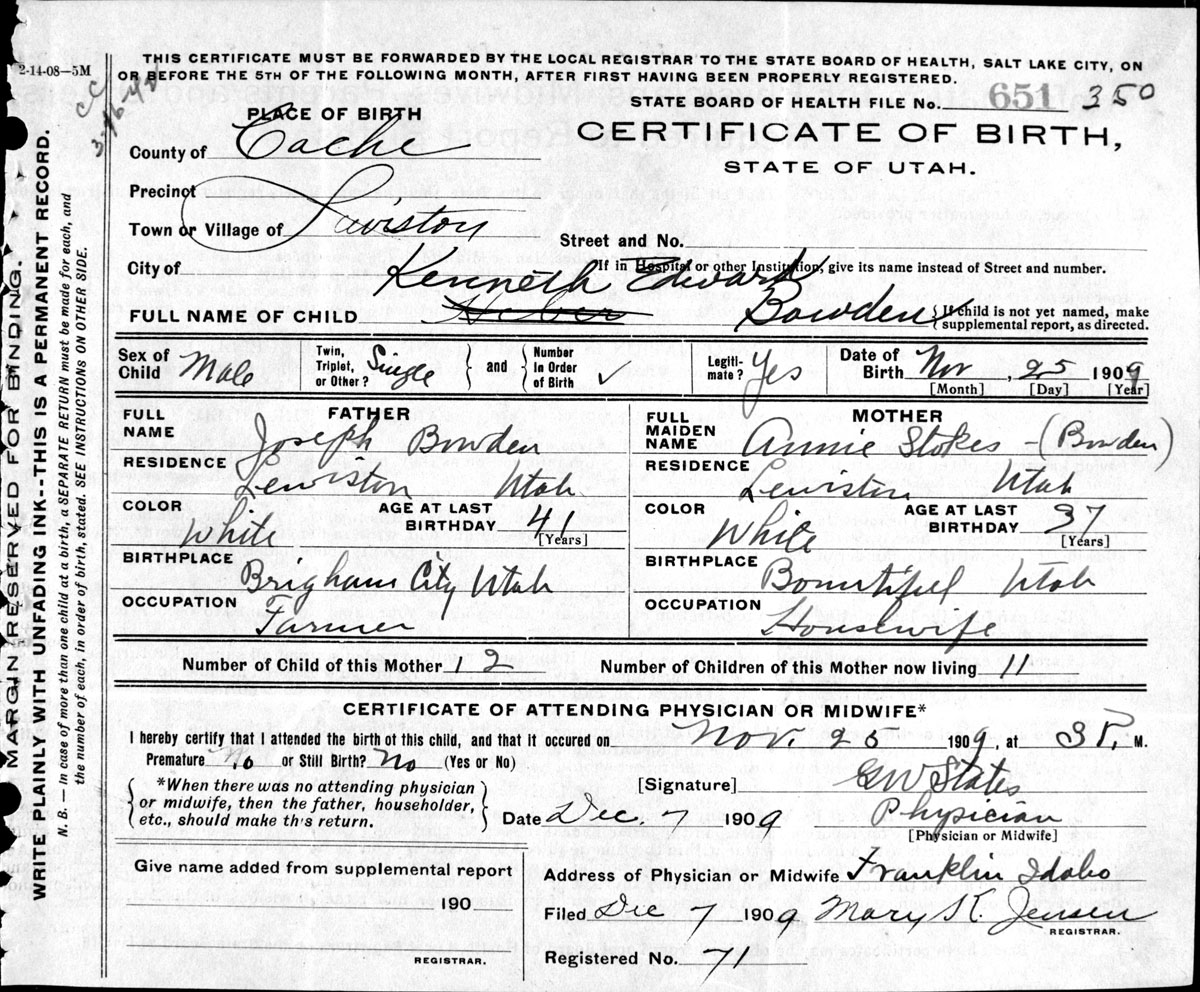 2-14-08—5M
THIS CERTIFICATE MUST BE FORWARDED BY THE LOCAL REGISTRAR TO THE STATE BOARD OF HEALTH, SALT LAKE CITY, ON
OR BEFORE THE 5TH OF THE FOLLOWING MONTH, AFTER FIRST HAVING BEEN PROPERLY REGISTERED.
STATE BOARD OF HEALTH FILE No. 651 350
PLACE OF BIRTH
CERTIFICATE OF BIRTH,
STATE OF UTAH.
County of Cache
Precinct
Town or Village of Lewiston
Street and No.
City of
If in Hospital or other Institution, give its name instead of Street and number.
Kenneth Edward
FULL NAME OF CHILD Heber Bowden { If child is not yet named, make
supplemental report, as directed.
Sex of Child Male
Twin, Triplet, or Other? Single } and { Number In Order of Birth ✓
Legiti-mate? Yes
Date of Birth Nov , 25 1909
[Month] [Day] [Year]
FATHER
FULL NAME Joseph Bowden
RESIDENCE Lewiston Utah
COLOR White
AGE AT LAST BIRTHDAY 41
[Years]
BIRTHPLACE Brigham City Utah
OCCUPATION Farmer
MOTHER
FULL MAIDEN NAME Annie Stokes - (Bowden)
RESIDENCE Lewiston Utah
COLOR White
AGE AT LAST BIRTHDAY 37
[Years]
BIRTHPLACE Bountiful Utah
OCCUPATION Housewife
Number of Child of this Mother 12 Number of Children of this Mother now living 11
CERTIFICATE OF ATTENDING PHYSICIAN OR MIDWIFE*
I hereby certify that I attended the birth of this child, and that it occured on Nov. 25 1909, at 3 P. M.
Premature No or Still Birth? No (Yes or No)
{ *When there was no attending physician
or midwife, then the father, householder,
etc., should make th's return. }
[Signature] GW States
Date Dec. 7 1909 Physician
[Physician or Midwife]
Give name added from supplemental report
190
REGISTRAR.
Address of Physician or Midwife Franklin Idaho
Filed Dec 7 1909 Mary K. Jensen
REGISTRAR.
Registered No. 71
MARGIN RESERVED FOR BINDING.
WRITE PLAINLY WITH UNFADING INK--THIS IS A PERMANENT RECORD.
N. B. — In case of more than one child at a birth, a SEPARATE RETURN must be made for each, and
the number of each, in order of birth, stated. SEE INSTRUCTIONS ON OTHER SIDE.